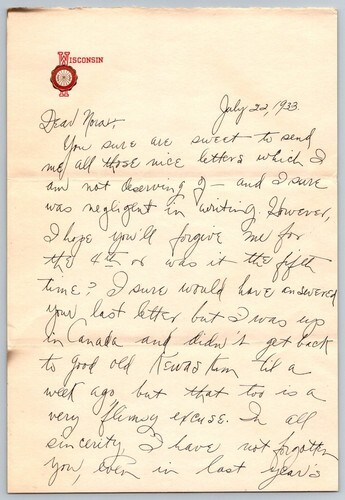 WISCONSIN
July 22, 1933.
Dear Nora,
You sure are sweet to send
me all those nice letters which I
am not deserving of – and I sure
was negligent in writing. However,
I hope you'll forgive me for
the 4th or was it the fifth
time? I sure would have answered
your last letter but I was up
in Canada and didn't get back
to good old Kewaskum 'til a
week ago but that too is a
very flimsy excuse. In all
sincerity, I have not forgotten
you, even in last year's